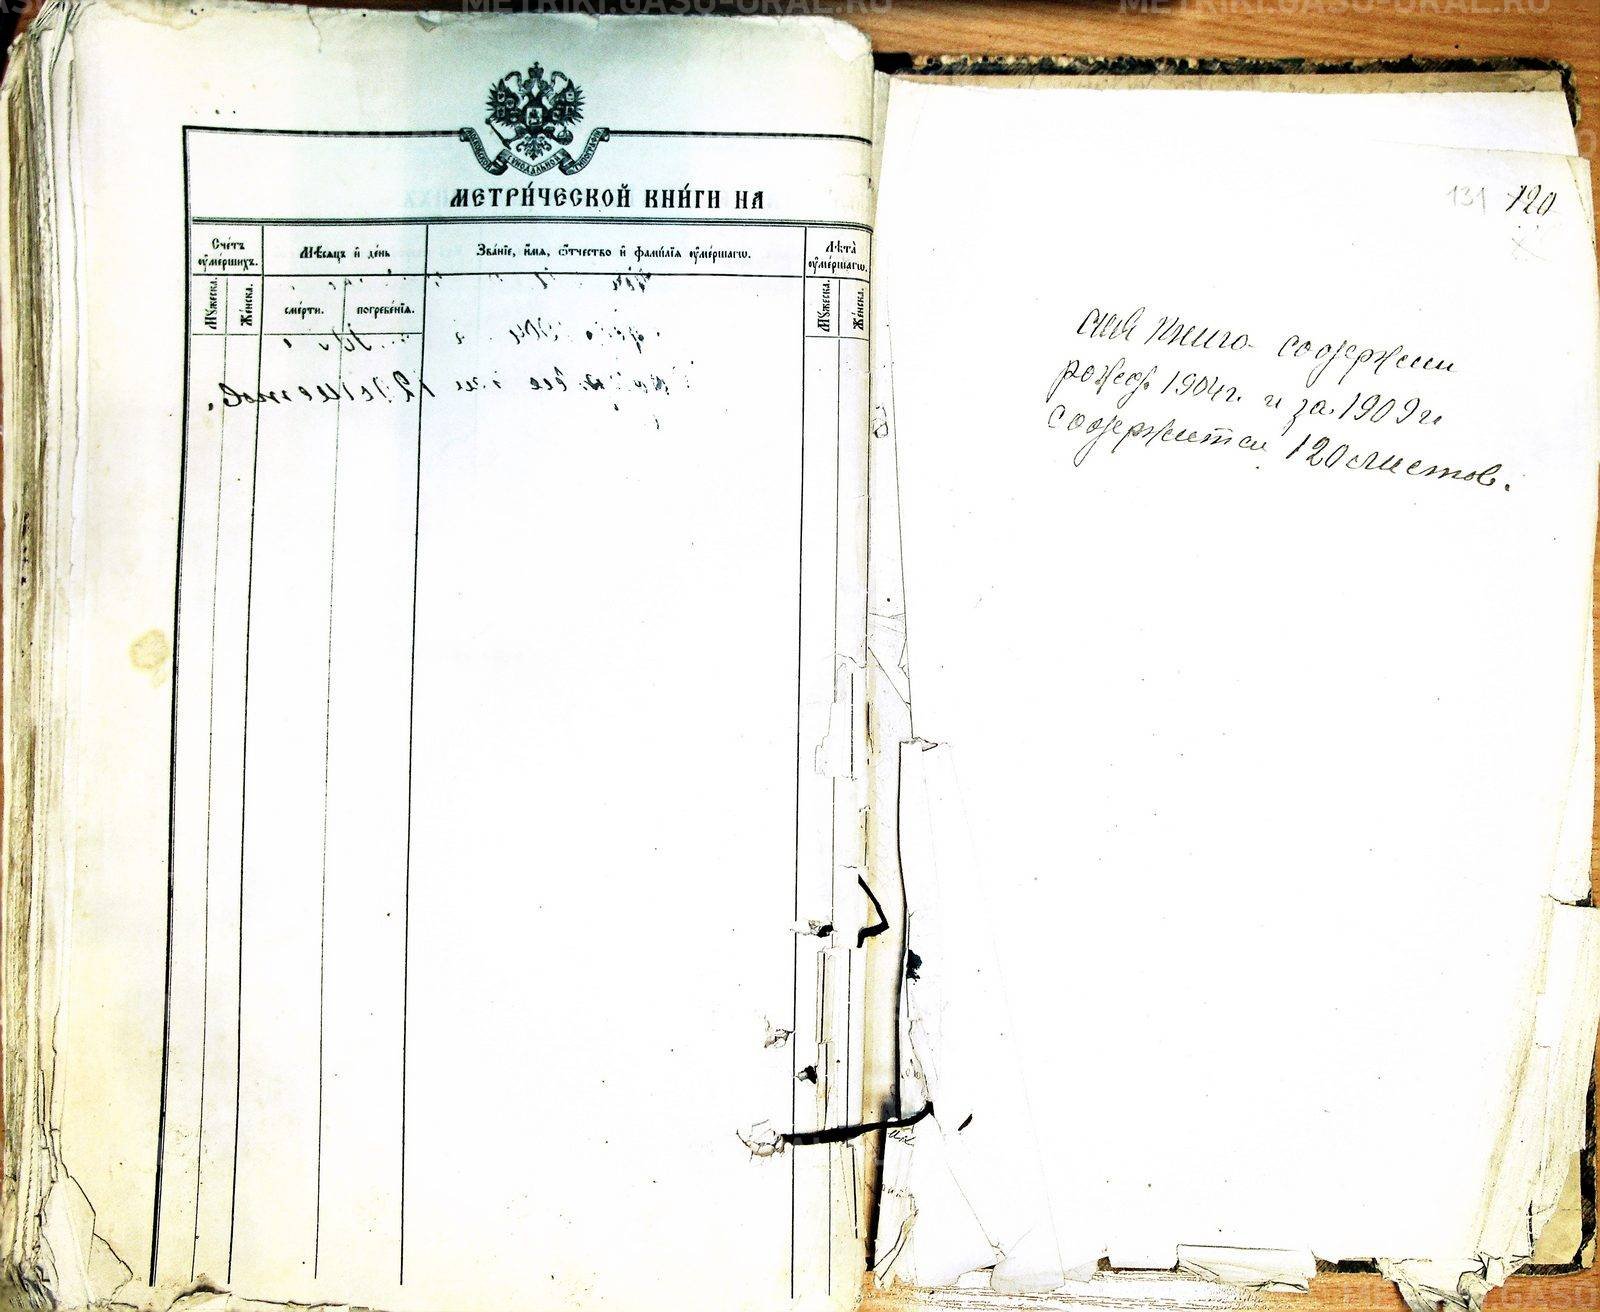 METRIKI.GASO-URAL.RU
METRIKI.GASO-URAL.RU
МОСКОВСКОЙ СѴНОДАЛЬНОЙ ТИПОГРАФІИ
МЕТРИ́ЧЕСКОЙ КНИ́ГИ НА
Сче́тъ ᲂу҆ме́ршихъ.
Мѣ́сяцъ и҆ де́нь
Зва́нїе, и҆́мя, ѻ҆́тчество и҆ фами́лїя ᲂу҆ме́ршагѡ.
Лѣ́та ᲂу҆ме́ршагѡ.
Мꙋ́жеска.
Же́нска.
сме́рти.
погребе́нїя.
Мꙋ́жеска.
Же́нска.
131 120
сия книга содержит
рожд. 1904г. и за 1909г
содержится 120 листов.